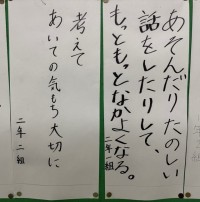 あそんだりたのしい
話をしたりして、
もっともっとなかよくなる。
二年一組
考えて
あいての気もち大切に
二年二組